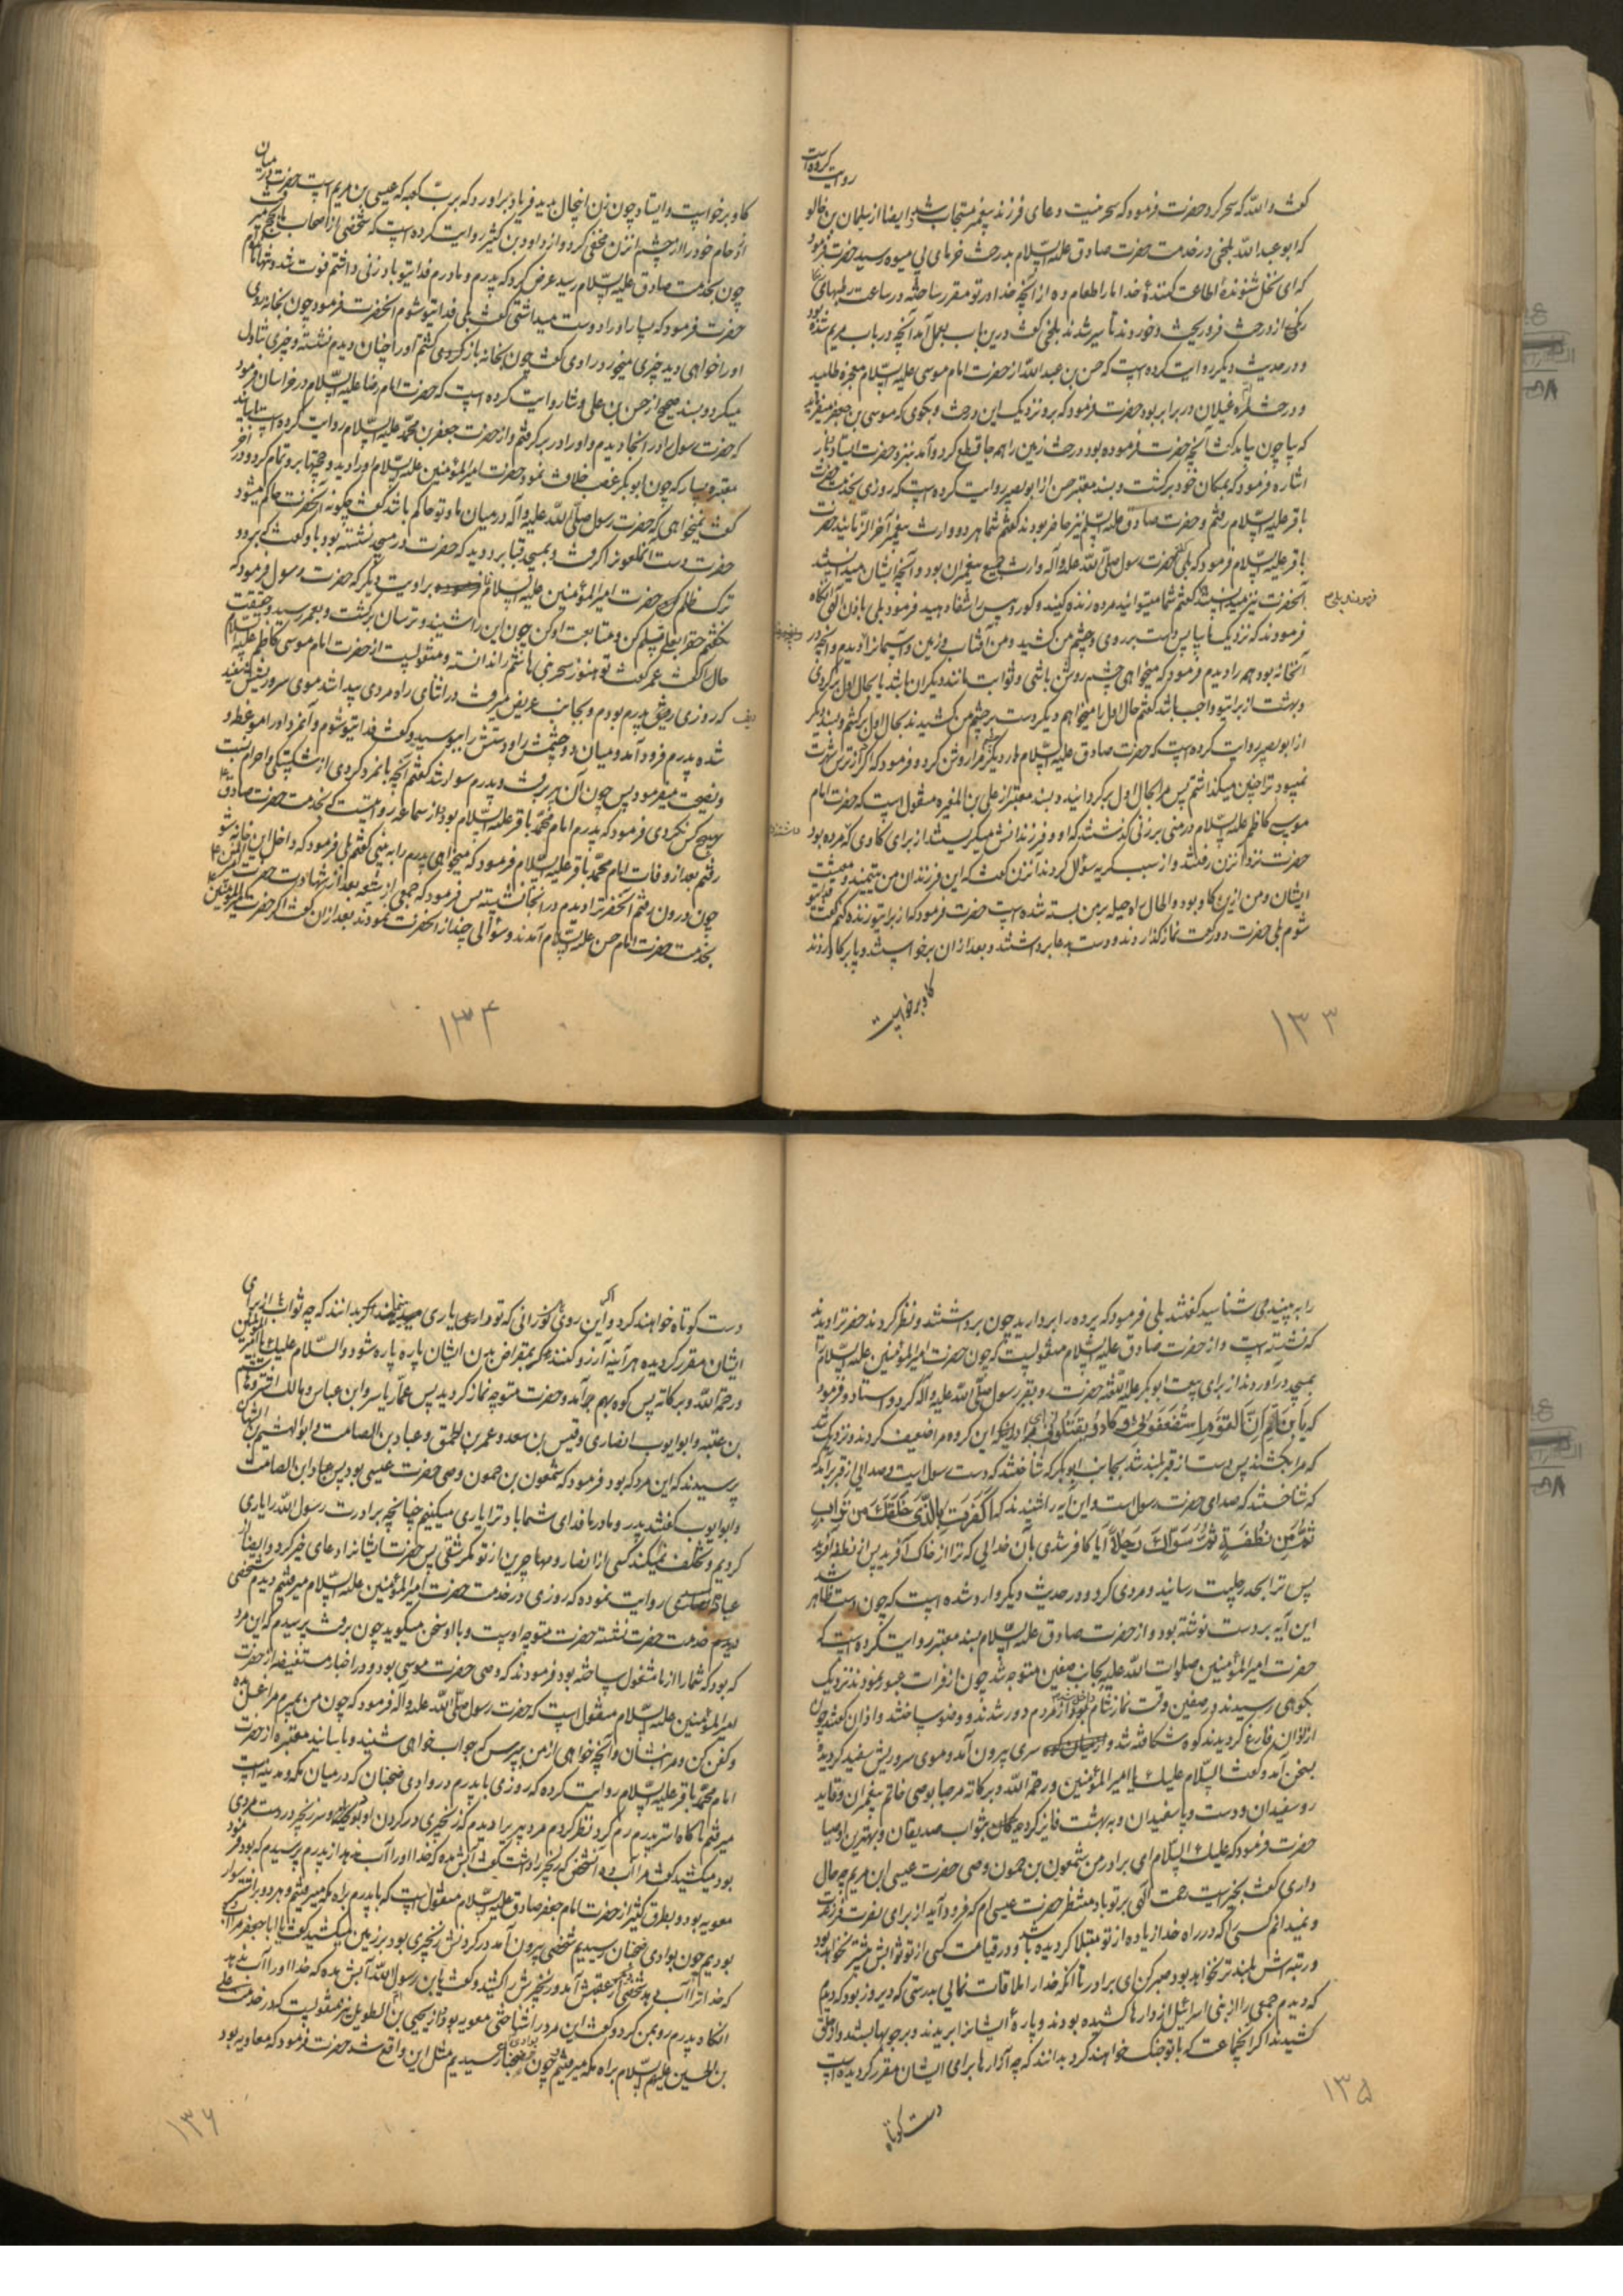 روایت کرده است
گفت والله که سحر کرد حضرت فرمود که سحر نیست دعای فرزند پیغمبر مستجاب شد و ایضا از سلیمان بن خالد
که ابو عبدالله بلخی در خدمت حضرت صادق علیه السلام بدرخت خرمای بی میوه رسید حضرت فرمود
که ای نخل شنونده اطاعت کننده خدا ما را اطعام ده از آنچه خدا در تو مقرر ساخته در ساعت رطبهای
رنگین از درخت فرو ریخت و خوردند تا سیر شدند بلخی گفت درین باب بعمل آمد آنچه در باب مریم شده بود
و در حدیث دیگر روایت کرده است که حسن بن عبدالله از حضرت امام موسی علیه السلام معجزه طلبید
و درخت مغیلان در برابر بود حضرت فرمود که برو نزدیک این درخت و بگوی که موسی بن جعفر میفرماید
که بیا چون بیامد گفت آنچه حضرت فرموده بود درخت زمین را همه جا قطع کرد و آمد نزد حضرت ایستاد و باز
اشاره فرمود که بمکان خود برگشت و بسند معتبر حسن از ابو بصیر روایت کرده است که روزی بخدمت حضرت
باقر علیه السلام رفتم و حضرت صادق علیه السلام نیز حاضر بودند گفتم شما هر دو وارث پیغمبر آخر الزمانید حضرت
باقر علیه السلام فرمود که بلی گفتم حضرت رسول صلی الله علیه وآله وارث جمیع پیغمبران بود و آنچه ایشان میدانستند
آنحضرت نیز میدانست گفتم شما میتوانید مرده زنده کنید و کور و پیس را شفا دهید فرمود بلی باذن الهی آنگاه
فرمودند که نزدیک ما بیا پس دست بر روی و چشم من کشید و من آفتاب و زمین و آسمان را دیدم و آنچه در
آنخانه بود همه را دیدم فرمود که میخواهی چشم روشن باشی و ثوابت مانند دیگران باشد یا بحال اول برگردی
و بهشت از برای تو واجب باشد گفتم حال اول را میخواهم دیگر دست بر چشم من کشیدند بحال اول برگشتم و بسند دیگر
از ابو بصیر روایت کرده است که حضرت صادق علیه السلام بار دیگر چشم مرا روشن کرد و فرمود که اگر از ترس شهرت
نمیبود ترا چنین میگذاشتم پس مرا بحال اول برگردانید و بسند معتبر از علی بن المغیره منقول است که حضرت امام
موسی کاظم علیه السلام در منی بر زنی گذشتند که او و فرزندانش میگریستند از برای گاوی که مرده بود
حضرت نزد آنزن رفتند و از سبب گریه سؤال کردند آنزن گفت که این فرزندان من یتیمند و معیشت
ایشان و من ازین گاو بود و الحال راه حیله بر من بسته شده است حضرت فرمود که از برای تو زنده کنم گفت فدای تو
شوم بلی حضرت دو رکعت نماز گذاردند و دست بدعا برداشتند و بعد از آن برخاستند و پا بر گاو زدند
گاو برخواست
۱۳۳
گاو برخواست و ایستاد چون زن اینحال بدید فریاد براورد که برب کعبه که عیسی بن مریم است حضرت در میان
ازدحام خود را از چشم آنزن مخفی کرد و از داود بن کثیر روایت کرده است که شخصی از اصحاب ما بحج میرفت
چون بخدمت صادق علیه السلام رسید عرض کرد که پدرم و مادرم فدای تو باد زنی داشتم فوت شد و تنها مانده ام
حضرت فرمود که بسیار او را دوست میداشتی گفت بلی فدای تو شوم آنحضرت فرمود چون بخانه روی
او را خواهی دید چیزی میخورد راوی گفت چون بخانه بازگردیدم او را چنان دیدم نشسته و چیزی تناول
میکرد و بسند صحیح از حسن بن علی وشا روایت کرده است که حضرت امام رضا علیه السلام در خراسان فرمود
که حضرت رسول را در اینجا دیدم و او را در بر گرفتم و از حضرت جعفر بن محمد علیه السلام روایت کرده است باسانید
معتبره بسیار که چون ابو بکر غصب خلافت نمود حضرت امیر المؤمنین علیه السلام او را دید و حجتها برو تمام کرد و در آخر
گفت میخواهی که حضرت رسول صلی الله علیه وآله در میان ما و تو حاکم باشد گفت چگونه آنحضرت حاکم میشود
حضرت دست آنملعون را گرفت و بمسجد قبا برد دید که حضرت در مسجد نشسته بود باو گفت که برو و
ترک ظلم کن حضرت امیر المؤمنین علیه السلام براویت دیگر که حضرت رسول فرمود که
نگفتم حق را بعلی تسلیم کن و متابعت او کن چون این را شنید و ترسان برگشت و بعمر رسید و حقیقت
حال را گفت عمر گفت تو هنوز سحر بنی هاشم را ندانسته و منقولست از حضرت امام موسی کاظم علیه السلام
که روزی رفیق پدرم بودم و بجانب عریض میرفت در اثنای راه مردی پیدا شد موی سر و ریش سفید
شده پدرم فرود آمد و میان دو چشمش را و دستش را ببوسید و گفت فدای تو شوم و آنمرد او را موعظه و
نصیحت میفرمود پس چون آن پیر برفت و پدرم سوار شد گفتم آنچه با نمرد کردی از شکستگی و احترام نسبت
بهیچ کس نکردی فرمود که پدرم امام محمد باقر علیه السلام بود و از سماعه روایتست که بخدمت حضرت صادق
رفتم بعد از وفات امام محمد باقر علیه السلام فرمود که میخواهی پدرم را به بینی گفتم بلی فرمود که داخل این خانه شو
چون درون رفتم آنحضرت را دیدم در آنجا نشسته پس فرمود که جمعی از شیعه بعد از شهادت حضرت امیر المؤمنین
بخدمت حضرت امام حسن علیه السلام آمدند و سؤالی چند از آنحضرت نمودند بعد از آن گفت اگر حضرت امیر المؤمنین
۱۳۴
را به بینید می شناسید گفتند بلی فرمود که پرده را بردارید چون برداشتند و نظر کردند حضرت را دیدند
که نشسته است و از حضرت صادق علیه السلام منقولست که چون حضرت امیر المؤمنین علیه السلام را
بمسجد درآوردند از برای بیعت ابو بکر علیه اللعنه حضرت رو بقبر رسول صلی الله علیه وآله کرد و ایستاد و فرمود
که یا بن ام ان القوم استضعفونی و کادوا یقتلوننی ای برادر این گروه مرا ضعیف کردند و نزدیک شد
که مرا بکشند پس دست از قبر بلند شد بجانب ابو بکر که شناختند که دست رسول است و صدایی از قبر برآمد
که شناختند که صدای حضرت رسول است و این آیه را شنیدند که اکفرت بالذی خلقک من تراب
ثم من نطفة ثم سواک رجلا آیا کافر شدی بآن خدایی که ترا از خاک آفرید پس از نطفه آفرید
پس ترا بحد رجلیت رسانید و مردی کرد و در حدیث دیگر وارد شده است که چون دست ظاهر شد
این آیه بر دست نوشته بود و از حضرت صادق علیه السلام بسند معتبر روایت کرده است که
حضرت امیر المؤمنین صلوات الله علیه بجانب صفین متوجه شد چون از فرات عبور نمودند نزدیک
بکوهی رسیدند در صفین وقت نماز شام داخل شد از مردم دور شدند و وضو ساختند و اذان گفتند چون
از اذان فارغ گردیدند کوه شکافته شد و سری بیرون آمد و موی سر و ریش سفید گردیده
بسخن آمد و گفت السلام علیک یا امیر المؤمنین و رحمة الله و برکاته مرحبا بوصی خاتم پیغمبران و قاید
رو سفیدان و دست و پا سفیدان و به بهشت فایز گردیدگان بثواب صدیقان و بهترین اوصیا
حضرت فرمود که علیک السلام ای برادر من شمعون بن حمون وصی حضرت عیسی ابن مریم چه حال
داری گفت بخیر است رحمت الهی بر تو باد منتظر حضرت عیسی ام که فرود آید از برای نصرت فرزندت
و نمیدانم کسی را که در راه خدا زیاده از تو مبتلا گردیده باشد و در قیامت کسی از تو ثوابش بیشتر نخواهد بود
و رتبه اش بلند تر نخواهد بود صبر کن ای برادر تا آنکه خدا را ملاقات نمایی بدرستی که دیروز بود که دیدم
که دیدم جمعی را از بنی اسرائیل از دارها کشیده بودند و پاره ایشانرا بریدند و بر چوبها بستند و از حلق
کشیدند اگر آنجماعت که با تو جنگ خواهند کرد بدانند که چه آزارها برای ایشان مقرر گردیده است
دست کوتاه
۱۳۵
دست کوتاه خواهند کرد و اگر این روی نورانی که تو داری یاری مینمایند بدانند که چه ثواب از برای
ایشان مقرر گردیده هر آینه آرزو کنند که بمقراض بدن ایشان پاره پاره شود و السلام علیک یا امیر المؤمنین
و رحمة الله و برکاته پس کوه بهم برآمد و حضرت متوجه نماز گردید پس عمار یاسر و ابن عباس و مالک اشتر و هاشم
بن عتبه و ابو ایوب انصاری و قیس بن سعد و عمر بن الحمق و عباد بن الصامت و ابو الهیثم بن التیهان
پرسیدند که این مرد که بود فرمود که شمعون بن حمون وصی حضرت عیسی بود پس عباد ابن الصامت
و ابو ایوب گفتند پدر و مادر ما فدای شما باد ترا یاری میکنیم چنانچه برادرت رسول الله را یاری
کردیم و تخلف نمیکند کسی از انصار و مهاجرین از تو مگر شقی پس حضرت ایشانرا دعای خیر کرد و ایضا از
عبایه اسدی روایت نموده که روزی در خدمت حضرت امیر المؤمنین علیه السلام میرفتم دیدم شخصی
دیدم خدمت حضرت نشسته حضرت متوجه اوست و با او سخن میگوید چون برفت پرسیدم که این مرد
که بود که شما را از ما مشغول ساخته بود فرمودند که وصی حضرت موسی بود و در اخبار مستفیضه از حضرت
امیر المؤمنین علیه السلام منقول است که حضرت رسول صلی الله علیه وآله فرمود که چون من بمیرم مرا غسل ده
و کفن کن و مرا بنشان و آنچه خواهی از من بپرس که جواب خواهی شنید و باسانید معتبره از حضرت
امام محمد باقر علیه السلام روایت کرده که روزی با پدرم در وادی ضجنان که در میان مکه و مدینه است
میرفتم ناگاه استر پدرم رم کرد نظر کردم مرد پیر را دیدم که زنجیری در گردن او بود و سر زنجیر در دست مردی
بود میکشید گفت مرا آب ده و آنشخص که زنجیر را داشت گفت آبش مده که خدا او را آب ندهد از پدرم پرسیدم که بود فرمود
معویه بود و بطرق کثیره از حضرت امام جعفر صادق علیه السلام منقول است که با پدرم براه مکه میرفتیم و هر دو بر اشتر سوار
بودیم چون بوادی ضجنان رسیدیم شخصی بیرون آمد در گردنش زنجیری بود بر زمین میکشید گفت یا ابا جعفر مرا آب ده
که خدا ترا آب دهد شخصی از عقبش آمد و زنجیرش را کشید و گفت یا بن رسول الله آبش مده که خدا او را آب ندهد
آنگاه پدرم رو بمن کرد و گفت این مرد را شناختی معویه بود و از یحیی بن ام الطویل نیز منقولست که در خدمت علی
بن الحسین علیهم السلام براه مکه میرفتم چون بوادی ضجنان رسیدیم مثل این واقع شد حضرت فرمود که معاویه بود
۱۳۶